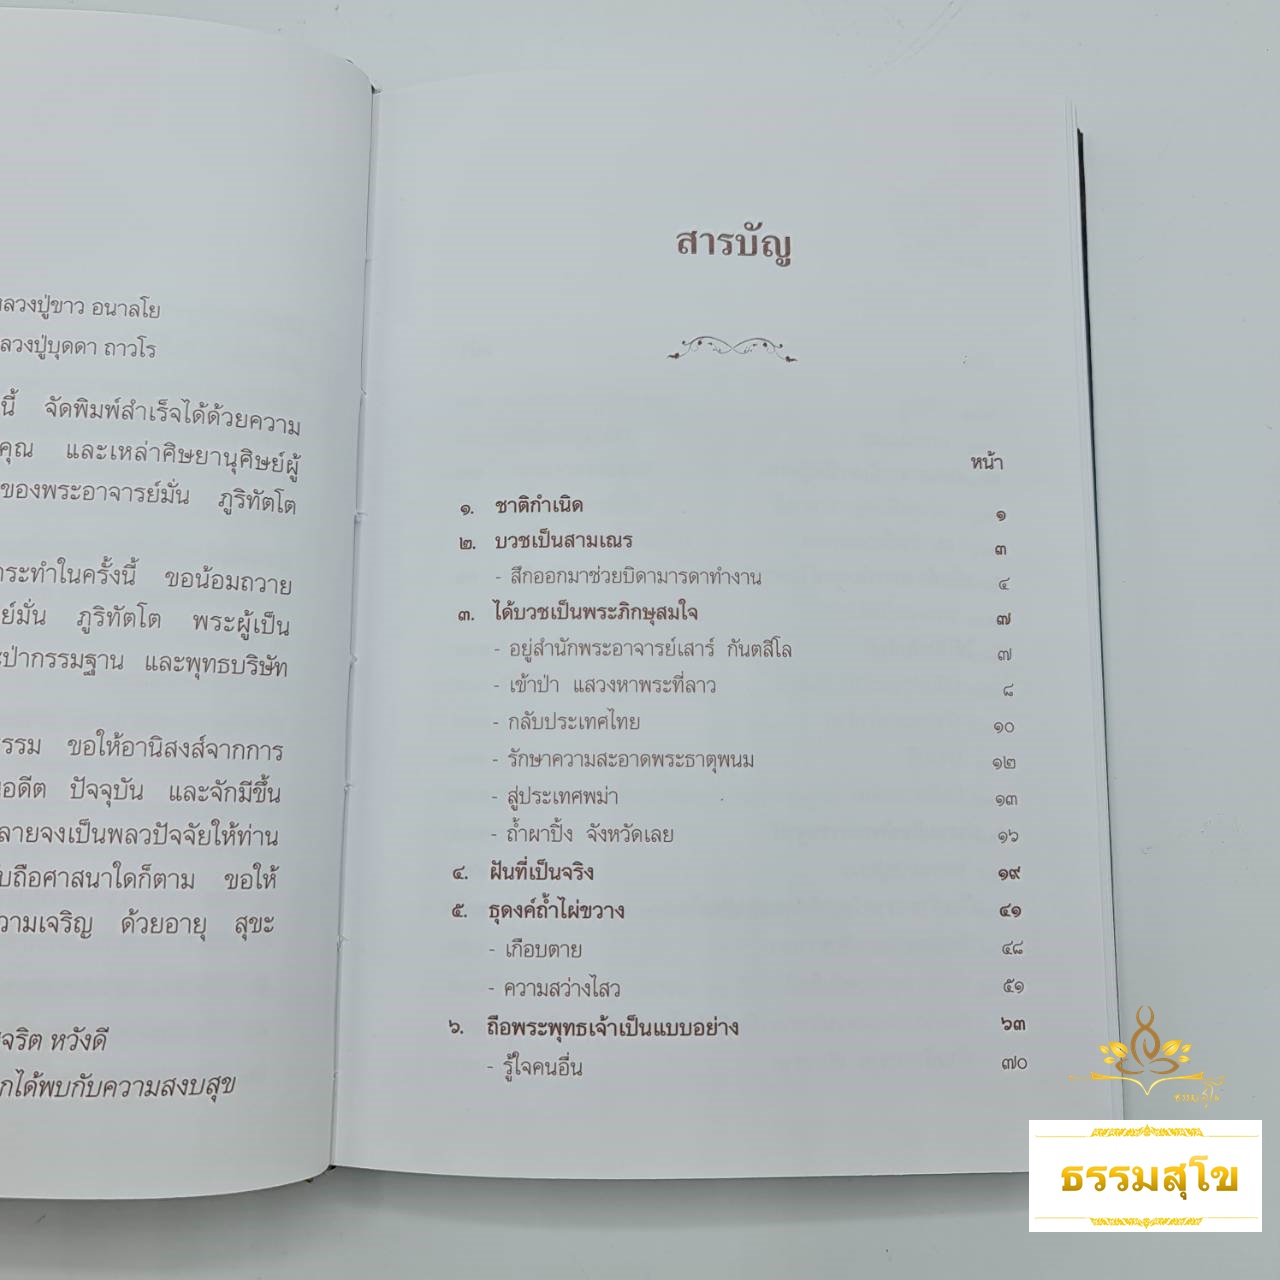 หลวงปู่ขาว อนาลโย
หลวงปู่บุดดา ถาวโร
นี้ จัดพิมพ์สำเร็จได้ด้วยความ
คุณ และเหล่าศิษยานุศิษย์ผู้
ของพระอาจารย์มั่น ภูริทัตโต
กระทำในครั้งนี้ ขอน้อมถวาย
ย์มั่น ภูริทัตโต พระผู้เป็น
ะป่ากรรมฐาน และพุทธบริษัท
รรม ขอให้อานิสงส์จากการ
อดีต ปัจจุบัน และจักมีขึ้น
ลายจงเป็นพลวปัจจัยให้ท่าน
ับถือศาสนาใดก็ตาม ขอให้
วามเจริญ ด้วยอายุ สุขะ
จริต หวังดี
กได้พบกับความสงบสุข
สารบัญ
หน้า
๑. ชาติกำเนิด ๑
๒. บวชเป็นสามเณร ๓
- สึกออกมาช่วยบิดามารดาทำงาน ๔
๓. ได้บวชเป็นพระภิกษุสมใจ ๗
- อยู่สำนักพระอาจารย์เสาร์ กันตสีโล ๗
- เข้าป่า แสวงหาพระที่ลาว ๘
- กลับประเทศไทย ๑๐
- รักษาความสะอาดพระธาตุพนม ๑๒
- สู่ประเทศพม่า ๑๓
- ถ้ำผาปิ้ง จังหวัดเลย ๑๖
๔. ฝันที่เป็นจริง ๑๙
๕. ธุดงค์ถ้ำไผ่ขวาง ๔๑
- เกือบตาย ๔๘
- ความสว่างไสว ๕๑
๖. ถือพระพุทธเจ้าเป็นแบบอย่าง ๖๓
- รู้ใจคนอื่น ๗๐
ธรรมสุโข
ธรรมสุโข